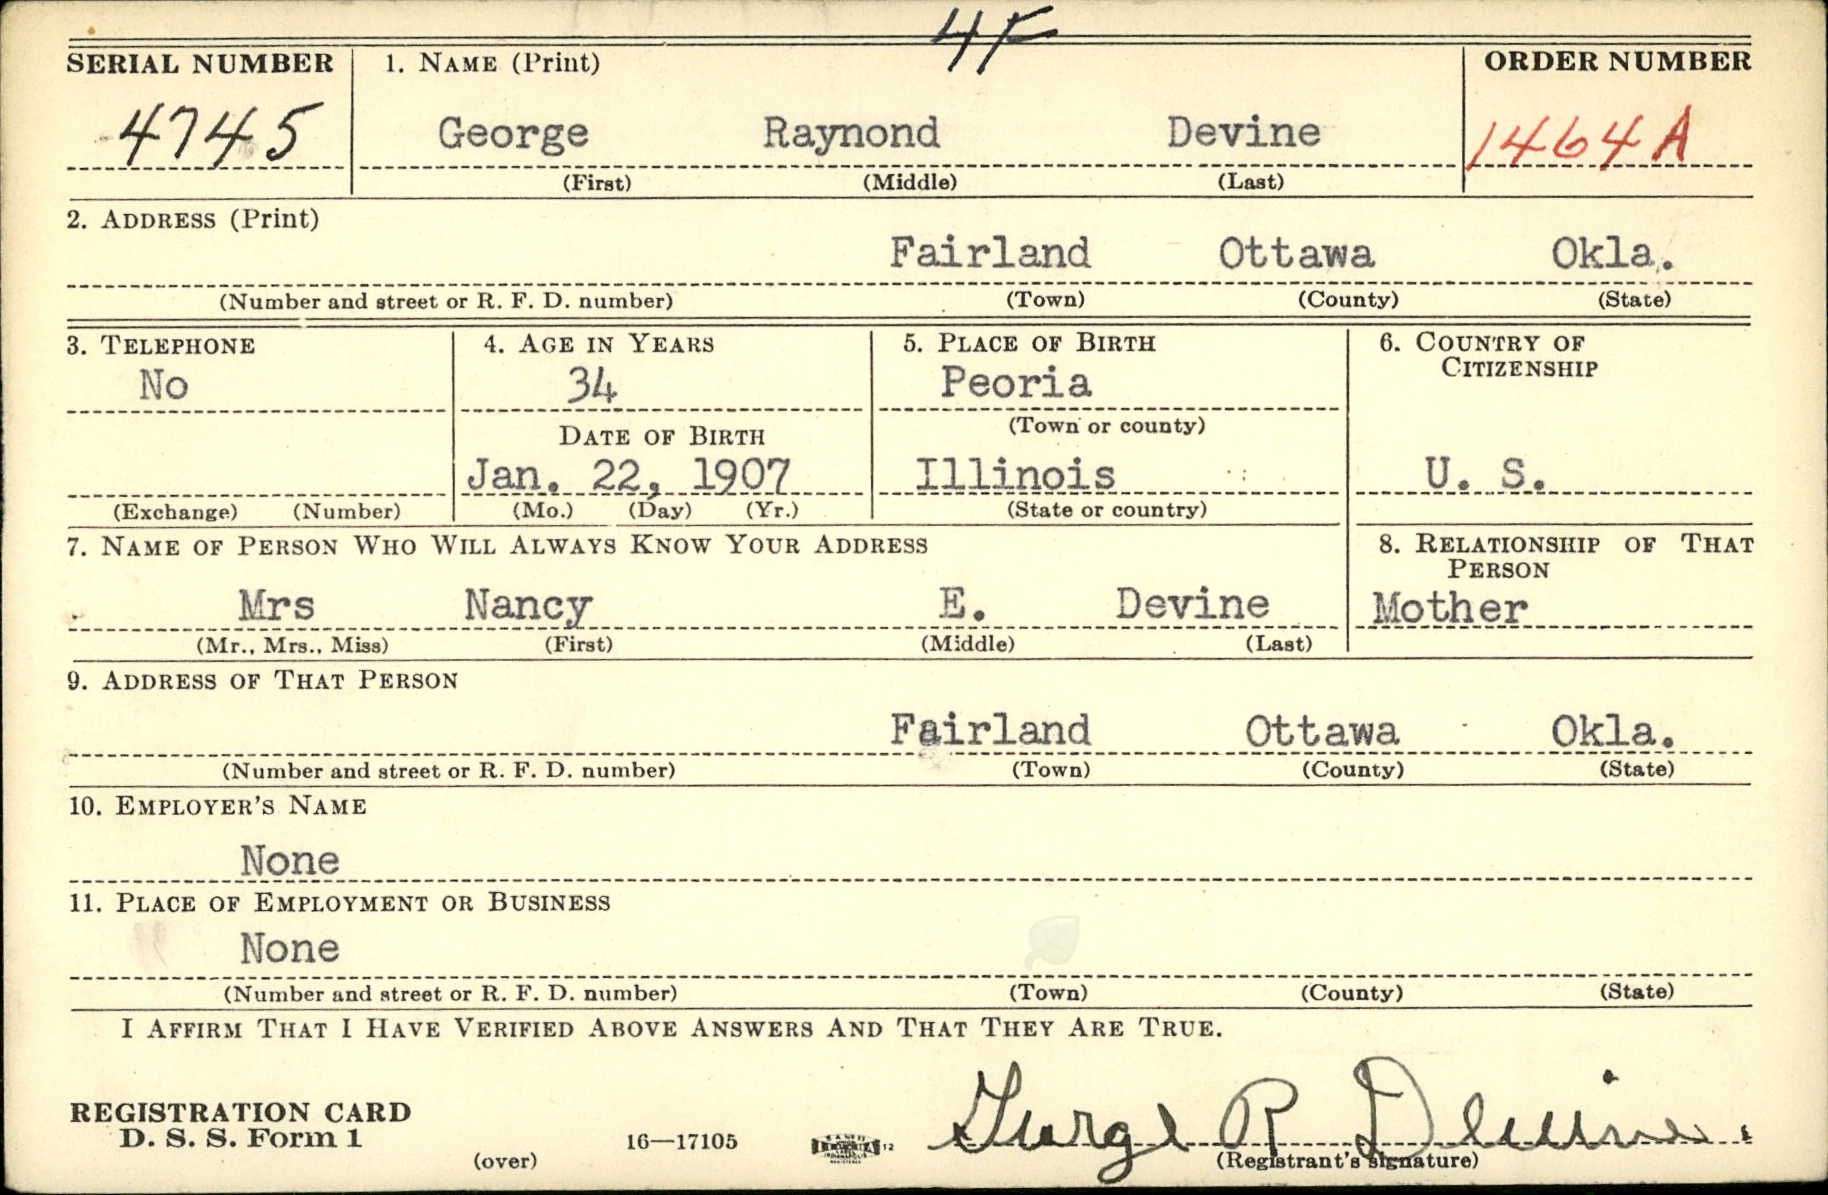 4F
SERIAL NUMBER 1. NAME (Print) ORDER NUMBER
4745 George Raynond Devine 1464A
(First) (Middle) (Last)
2. ADDRESS (Print)
Fairland Ottawa Okla.
(Number and street or R. F. D. number) (Town) (County) (State)
3. TELEPHONE 4. AGE IN YEARS 5. PLACE OF BIRTH 6. COUNTRY OF
CITIZENSHIP
No 34 Peoria
DATE OF BIRTH (Town or county)
Jan. 22, 1907 Illinois U. S.
(Exchange) (Number) (Mo.) (Day) (Yr.) (State or country)
7. NAME OF PERSON WHO WILL ALWAYS KNOW YOUR ADDRESS 8. RELATIONSHIP OF THAT
PERSON
Mrs Nancy E. Devine Mother
(Mr., Mrs., Miss) (First) (Middle) (Last)
9. ADDRESS OF THAT PERSON
Fairland Ottawa Okla.
(Number and street or R. F. D. number) (Town) (County) (State)
10. EMPLOYER'S NAME
None
11. PLACE OF EMPLOYMENT OR BUSINESS
None
(Number and street or R. F. D. number) (Town) (County) (State)
I AFFIRM THAT I HAVE VERIFIED ABOVE ANSWERS AND THAT THEY ARE TRUE.
George R Devine
REGISTRATION CARD
D. S. S. Form 1 16—17105 12
(over) (Registrant's signature)